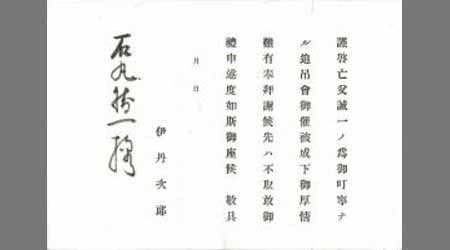 謹啓亡父誠一ノ爲御叮寧ナ
ル追吊會御催被成下御厚情
難有奉拜謝候先ハ不取敢御
禮申述度如斯御座候 敬具
月 日
伊丹次郎
石丸勝一様